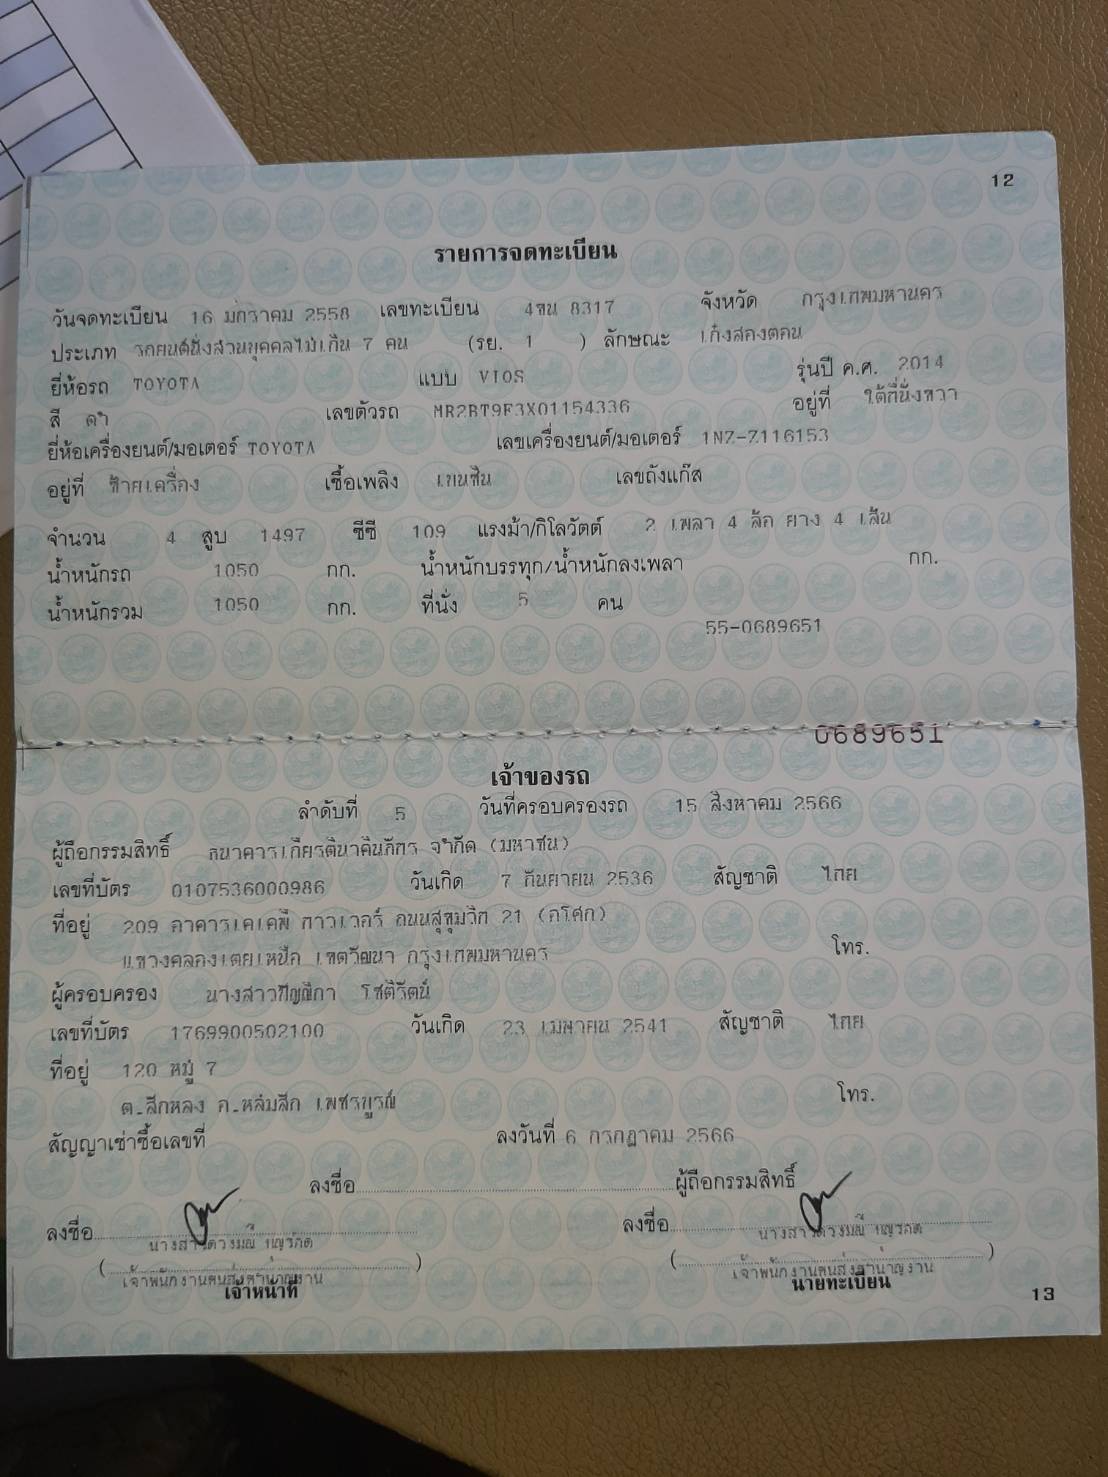 12
รายการจดทะเบียน
วันจดทะเบียน 16 มกราคม 2558 เลขทะเบียน 4ขน 8317 จังหวัด กรุงเทพมหานคร
ประเภท รถยนต์นั่งส่วนบุคคลไม่เกิน 7 คน (รย. 1 ) ลักษณะ เก๋งสองตอน
ยี่ห้อรถ TOYOTA แบบ VIOS รุ่นปี ค.ศ. 2014
สี ดำ เลขตัวรถ MR2BT9F3X01154336 อยู่ที่ ใต้ที่นั่งขวา
ยี่ห้อเครื่องยนต์/มอเตอร์ TOYOTA เลขเครื่องยนต์/มอเตอร์ 1NZ-Z116153
อยู่ที่ ซ้ายเครื่อง เชื้อเพลิง เบนซิน เลขถังแก๊ส
จำนวน 4 สูบ 1497 ซีซี 109 แรงม้า/กิโลวัตต์ 2 เพลา 4 ล้อ ยาง 4 เส้น
น้ำหนักรถ 1050 กก. น้ำหนักบรรทุก/น้ำหนักลงเพลา กก.
น้ำหนักรวม 1050 กก. ที่นั่ง 5 คน
55-0689651
0689651
เจ้าของรถ
ลำดับที่ 5 วันที่ครอบครองรถ 15 สิงหาคม 2566
ผู้ถือกรรมสิทธิ์ ธนาคารเกียรตินาคินภัทร จำกัด (มหาชน)
เลขที่บัตร 0107536000986 วันเกิด 7 กันยายน 2536 สัญชาติ ไทย
ที่อยู่ 209 อาคารเคเคพี ทาวเวอร์ ถนนสุขุมวิท 21 (อโศก)
แขวงคลองเตยเหนือ เขตวัฒนา กรุงเทพมหานคร โทร.
ผู้ครอบครอง นางสาว โชติรัตน์
เลขที่บัตร 1769900502100 วันเกิด 23 เมษายน 2541 สัญชาติ ไทย
ที่อยู่ 120 หมู่ 7
ต.ลึกหลง อ.หล่มสัก เพชรบูรณ์ โทร.
สัญญาเช่าซื้อเลขที่ ลงวันที่ 6 กรกฎาคม 2566
ลงชื่อ ผู้ถือกรรมสิทธิ์
ลงชื่อ ลงชื่อ
นางสาวดวงมณี นางสาวดวงมณี
( ) ( )
เจ้าพนักงานขนส่งชำนาญงาน เจ้าพนักงานขนส่งชำนาญงาน
เจ้าหน้าที่ นายทะเบียน
13